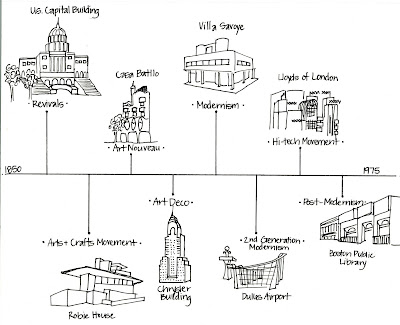 U.S. Capital Building
Revivals
Casa Batllo
Art Nouveau
Villa Savoye
Modernism
Lloyds of London
Hi-tech Movement
1850
1975
Arts + Crafts Movement
Robie House
Art Deco
Chrysler
Building
2nd Generation
Modernism
Dulles Airport
Post-Modernism
Boston Public
Library